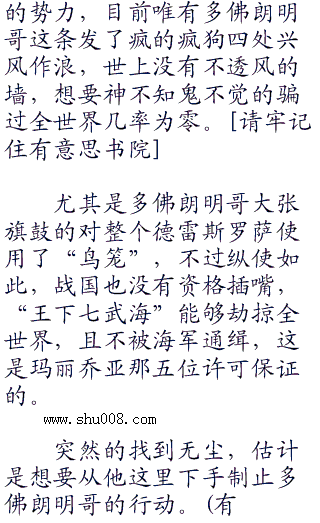 的势力，目前唯有多佛朗明
哥这条发了疯的疯狗四处兴
风作浪，世上没有不透风的
墙，想要神不知鬼不觉的骗
过全世界几率为零。[请牢记
住有意思书院]
尤其是多佛朗明哥大张
旗鼓的对整个德雷斯罗萨使
用了“鸟笼”，不过纵使如
此，战国也没有资格插嘴，
“王下七武海”能够劫掠全
世界，且不被海军通缉，这
是玛丽乔亚那五位许可保证
的。
www.shu008.com
突然的找到无尘，估计
是想要从他这里下手制止多
佛朗明哥的行动。(有